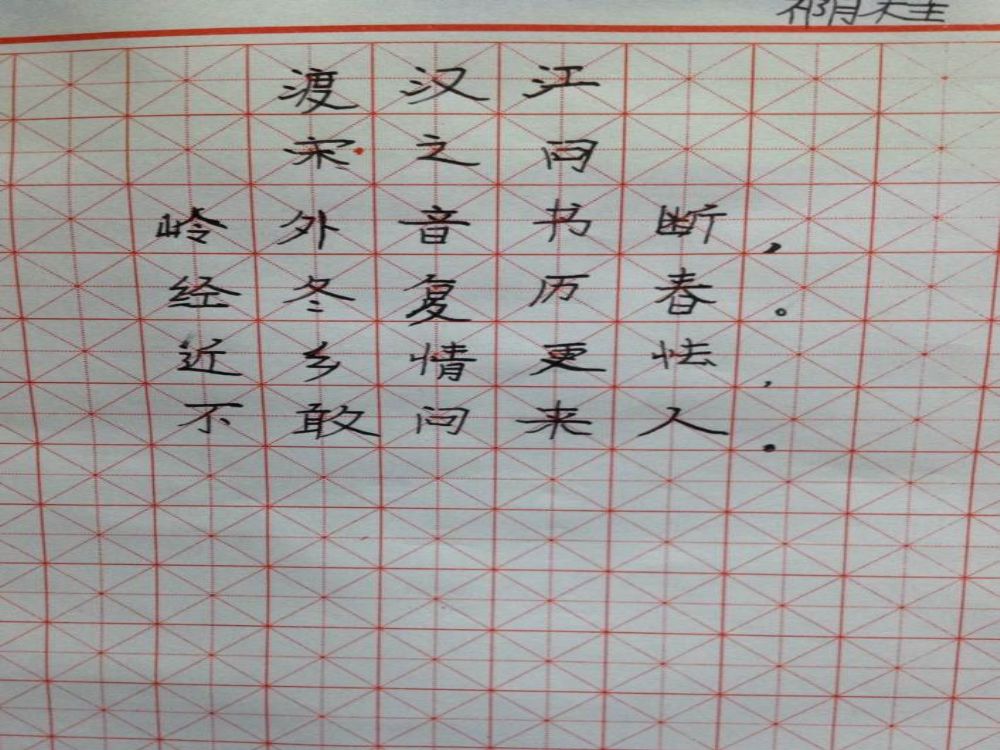 渡汉江
宋之问
岭外音书断，
经冬复历春。
近乡情更怯，
不敢问来人.